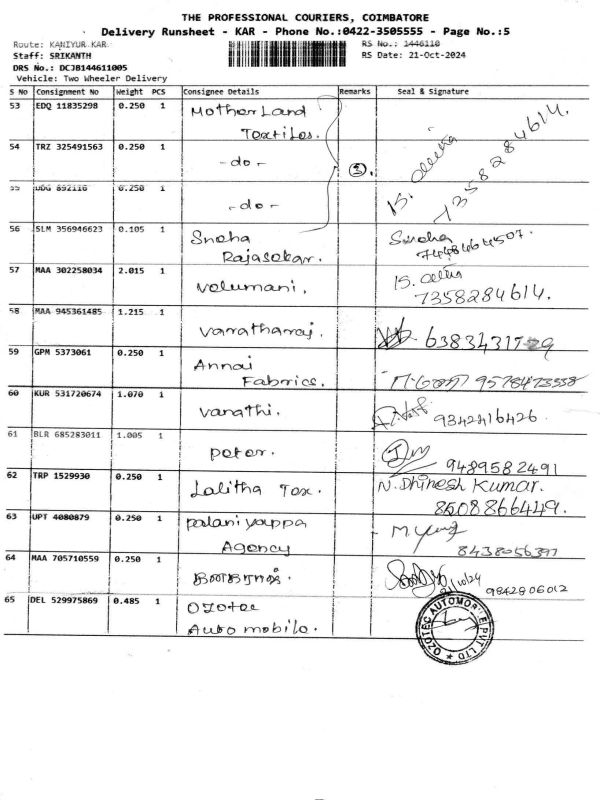 THE PROFESSIONAL COURIERS, COIMBATORE
Delivery Runsheet - KAR - Phone No.:0422-3505555 - Page No.:5
Route: KANIYUR KAR
RS No.: 1446110
Staff: SRIKANTH
RS Date: 21-Oct-2024
DRS No.: DCJB144611005
Vehicle: Two Wheeler Delivery
S No Consignment No Weight PCS Consignee Details Remarks Seal & Signature
53 EDQ 11835298 0.250 1 Mother Land
Textiles.
54 TRZ 325491563 0.250 1 -do- 3. 7358284614.
55 892116 0.250 1 -do-
56 SLM 356946623 0.105 1 Sneha Sneha
Rajasekar. 7448464507.
57 MAA 302258034 2.015 1 Velumani. 7358284614.
58 MAA 945361485 1.215 1 Varatharaj.
59 GPM 5373061 0.250 1 Annai
Fabrics.
60 KUR 531720674 1.070 1 Varathi. 9342416426
61 BLR 685283011 1.005 1 Peter. 9489582491
62 TRP 1529930 0.250 1 Lalitha Tex. N. Dhinesh Kumar.
8508866449.
63 UPT 4080879 0.250 1 Palaniyappa
Agency 8438056397
64 MAA 705710559 0.250 1 9842906012
65 DEL 529975869 0.485 1 Ozotec
Automobile. OZOTEC AUTOMOBILE PVT LTD